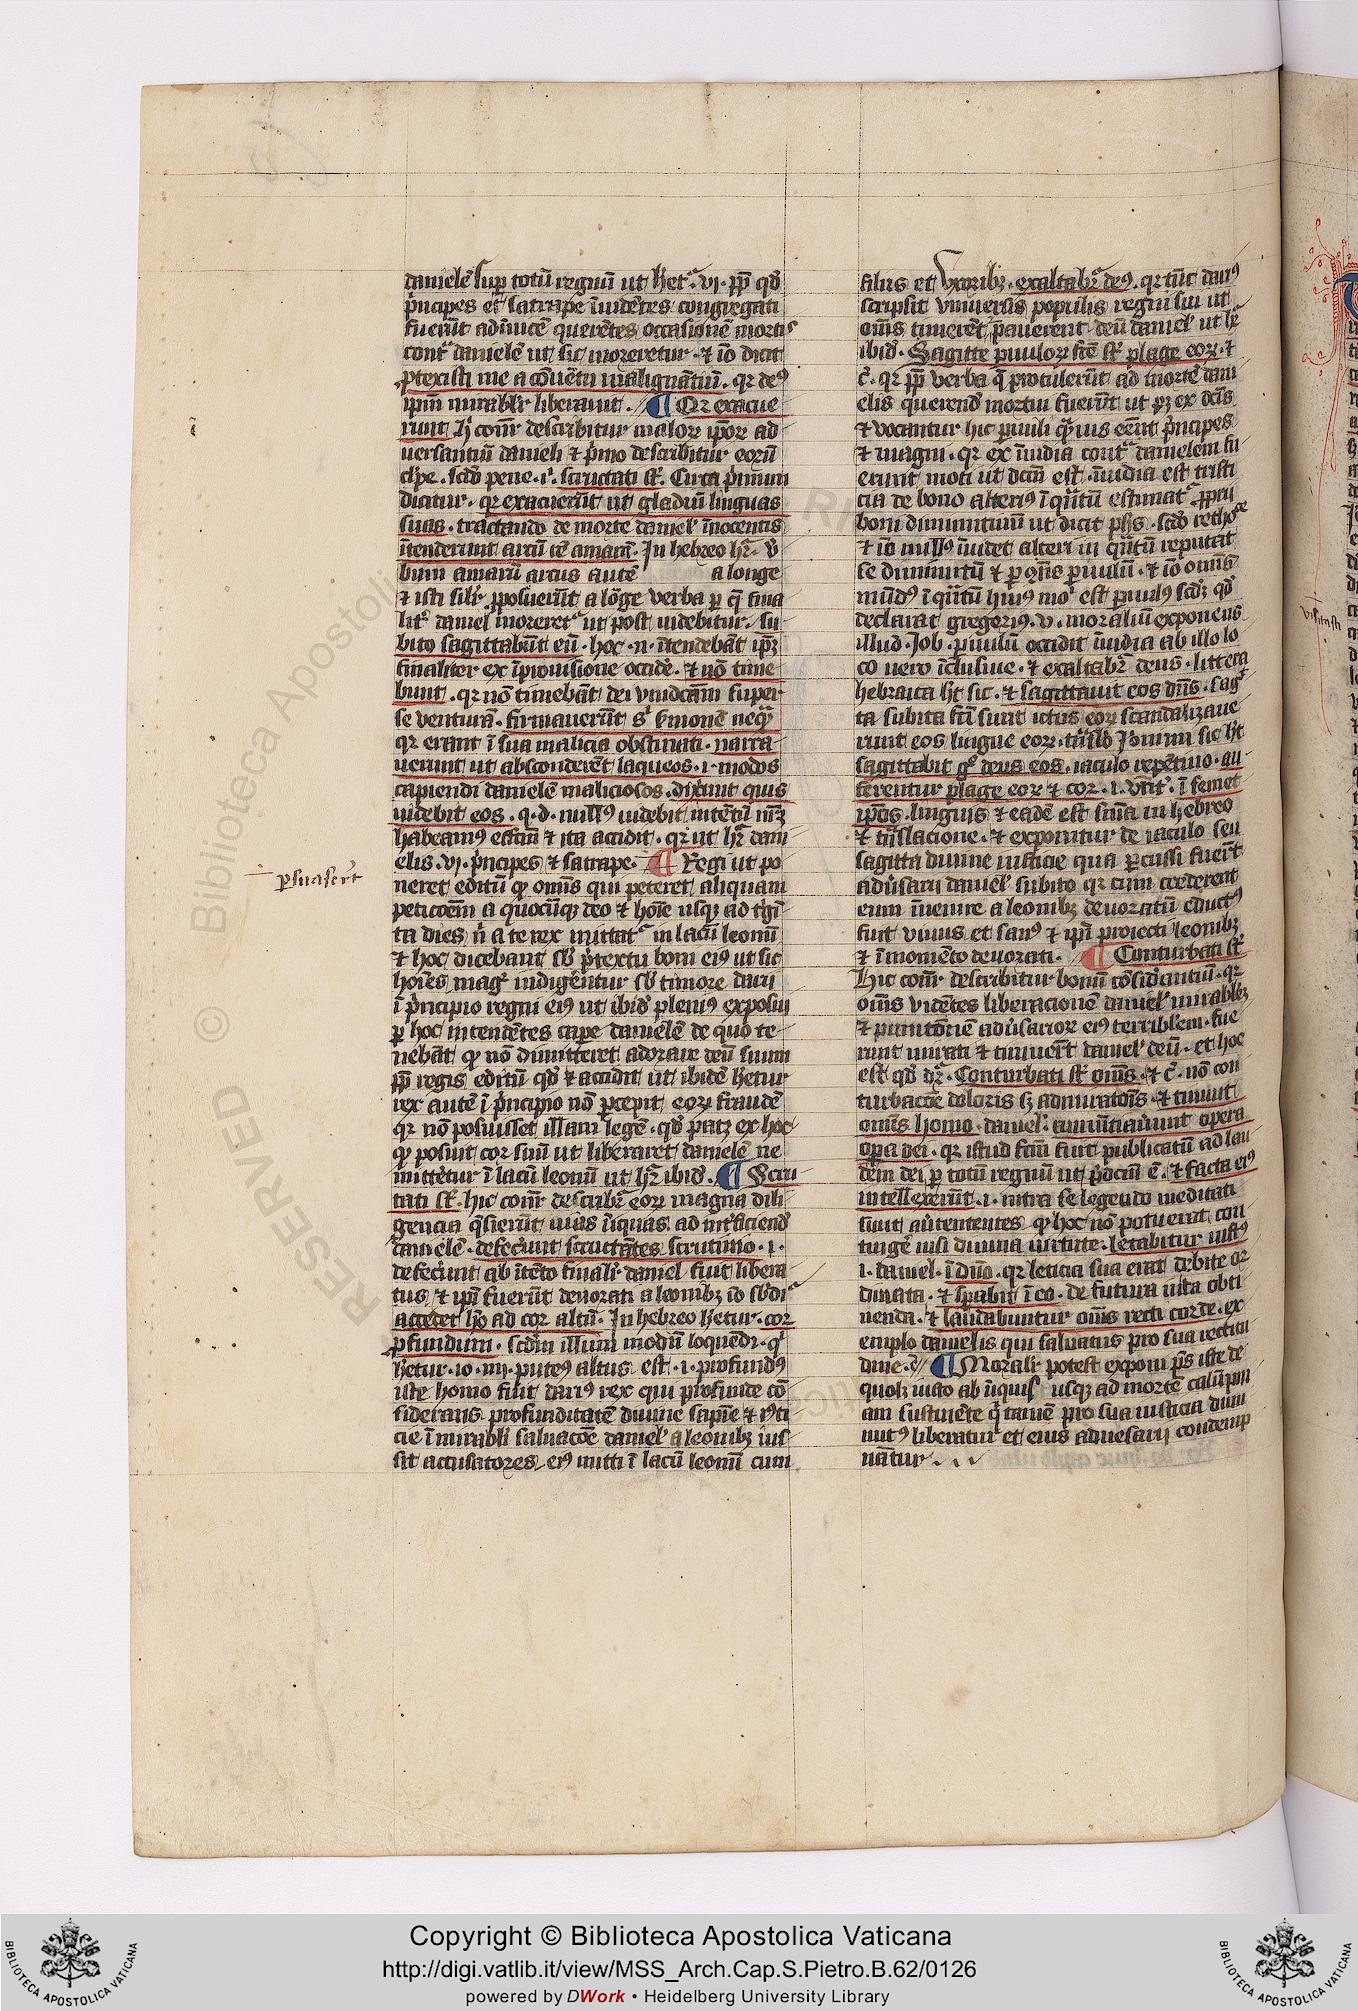 daniele͂ sup totū regnū ut hetᷣ. vi. ꝓp qd̕
pͥncipes et satrape īuide͂tes congregati
fuerūt adīuice͂ quere͂tes occasione͂ mortis
contᷓ daniele͂ ut sic moreretur. ⁊ iō dicit
ꝓtexisti me a cōue͂tu malignātiū. qr deꝰ
ip̄m mirabl̕r liberauit. ¶ Qr exacue
runt hͥ com̄r describitur malor̨ ip̄or̨ ad
uersantiū danieli ⁊ pͥmo describitur eorū
cl̕pe. scd̕o pene. ī. scrutati st̄. Circa pͥmum
dicitur. qr exacuerūt ut gladiū linguas
suas. tractando de morte daniel̕ īnocentis
īntenderunt arcū re͂ amarā. Jn hebreo hr̄. v̕
bum amarū arcus aute͂ a longe
⁊ isti sil̕r ꝓposuerūt a lo͂ge verba ꝑ q̄ fina
lit̕ daniel moreretᷣ ut post uidebitur. su
bito sagittabūt eū. hoc. n. īntendebāt ip̄z
finaliter ex īprouisione occide̕. ⁊ nō time
bunt. qr nō timebāt dei vindictam super
se venturā. firmauerūt sͥ ẜmone͂ neqᷓ
qr erant ī sua malicia obstinati. narra
uerunt ut absconderēt laqueos. i. modos
capiendi daniele͂ maliciosos. dix̕unt quis
uidebit eos. q. d. nullꝰ uidebit inte͂tū nr̄ꝫ
habeamꝰ effc̄m ⁊ ita accidit. qr ut hr̄ dani
elis. vi. pͥncipes ⁊ satrape. ¶ Regi ut po
ꝑsuaser̄t
neret edictū qꝫ om̄s qui peteret aliquam
petic̄oe͂m a quocūqꝫ deo ⁊ hoīe usqꝫ ad tͥgī
ta dies n̄ a te rex mittatᷣ in lacū leonū
⁊ hoc dicebant sb̕ pͥtextu boni eiꝰ ut sic
hoīes magͥ indigerentur sb̕ timore darii
ī pͥncipio regni eiꝰ ut ibid̕ pleniꝰ exposui
ꝑ hoc intende͂tes cape̕ daniele͂ de quo te
nebāt qꝫ nō dimitteret adorare deū suum
ꝓp regis edictū qd̕ ⁊ accidit ut ibide͂ hetur
rex aute͂ ī pͥncipio nō ꝑcepit eor̨ fraude͂
qr nō posuisset illam lege͂. qd̕ patꝫ ex hoc
qꝫ posuit cor suū ut liberaret daniele͂ ne
mitte̕tur ī lacū leonū ut hr̄ ibid̕. ¶ Scru
tati st̄. hic com̄r describr̄ eor̨ magna dili
gencia q̄sierūt uias īniquas ad int̕ficiend̕
daniele͂. defec̕unt scrutātes scrutinio. i.
defec̕unt ab īte͂to finali. daniel fuit libera
tus ⁊ ip̄i fuerūt deuorati a leonibꝫ iō sb̕diᷣ
accedet ho ad cor altū. Jn hebreo hetur. cor
ꝓfundum. scd̕m illum modū loquend̕. qͥ
hetur. io. iiij. puteꝰ altus est. i. profundꝰ
iste homo fuit dariꝰ rex qui profunde cō
siderans profunditate͂ diuine sapīe ⁊ iusti
cie ī mirabli saluac̄oe͂ daniel̕ a leonibꝫ ius
sit accusatores eiꝰ mitti ī lacū leonū cum
filiis et vxoribꝫ. exaltabr̄ deꝰ. qr tūc dariꝰ
scripsit vniuersis populis regni sui ut
om̄s timere͂t ⁊ pauerent deū daniel̕ ut hr̄
ibid̕. Sagitte ꝑuulor̨ fc̄e st̄ plage eor̨. ⁊
c̄. qr ꝓp verba q̄ protulerūt ad morte͂ dani
elis querend̕ mortui fuerūt ut pꝫ ex dc̄is
⁊ vocantur hic ꝑuuli qᷓuis eēnt pͥncipes
⁊ magni. qr ex īuidia contᷓ danielem fu
erunt moti ut dc̄m est. īuidia est tristi
cia de bono alteriꝰ īqᷓtū estimatᷣ ꝓprii
boni diminutiuū ut dicit ph̄s. scd̕o rethorice
⁊ iō nullꝰ īuidet alteri in qᷓtū reputat
se diminutū ⁊ ꝑ ꝯn̄s ꝑuulū. ⁊ iō om̄is
mūdꝰ īqᷓtū huiꝰ moͥ est ꝑuulꝰ scd̕ꝫ qd̕
declarat gregoriꝰ. v. moraliū exponens
illud. Job. ꝑuulū occidit īuidia ab illo lo
co uero īclusiue. ⁊ exaltabr̄ deus. littera
hebraica ht̕ sic. ⁊ sagittauit eos dn̄s. sagͥt
ta subita fc̄i sunt ictus eor̨ scandalizaue
runt eos lingue eor̨. tn̄sl̕o Jeronimi sic ht̕
sagittabit gͦ deus eos. iaculo repe͂tino. au
ferentur plage eor̨ ⁊ cor. i. vn̄t̕. ī semet
ip̄os. linguis ⁊ eade͂ est sn̄ia in hebreo
⁊ tn̄slacione. ⁊ exponitur de iaculo seu
sagitta diuine iusticie qua ꝑcussi fuerūt
adu̕sarii daniel̕ subito qr cum crederent
eum īuenire a leonibꝫ deuoratū eductꝰ
fuit viuus et sanꝰ ⁊ ip̄i proiecti leonibꝫ
⁊ ī mome͂to deuorati. ¶ Conturbati st̄
Hic com̄r describitur bonū cōsid̕antiū. qr
om̄s vide͂tes liberacione͂ daniel̕ mirabl̕eꝫ
⁊ punitōne͂ adu̕sarior̨ eiꝰ terribl̕em. fue
runt mirati ⁊ timuer̄t daniel̕ deū. et hoc
est qd̕ dr̄. Conturbati st̄ om̄s. ⁊ c̄. nō con
turbac̄oe͂ doloris sꝫ admiratōis. ⁊ timuit
om̄is homo. daniel̕. ānūnciau̕unt opera
oꝑa dei. qr istud fc̄m fuit publicatū ad lau
de͂m dei ꝑ totū regnū ut pͥdc̄m ē. ⁊ facta eiꝰ
intellexerūt. i. intra se legendo meditati
sunt aduertentes qꝫ hoc nō potuerat con
tinge̕ nisi diuina uirtute. letabitur iustꝰ
i. daniel. ī dn̄o. qr leticia sua erat debite or
dinata. ⁊ sꝑabit ī eo. de futura uita obti
nenda. ⁊ laudabuntur om̄s recti corde. ex
emplo danielis qui saluatus pro sua rectitu
dine. ⁊c̄ ¶ Moral̕r potest exponi ps̄ iste de
quolꝫ iusto ab īniquis usqꝫ ad morte͂ calūpni
am sustine͂te qͥ tame͂ pro sua iusticia diui
nitꝰ liberatur et eius aduersarij condemp
nātur.